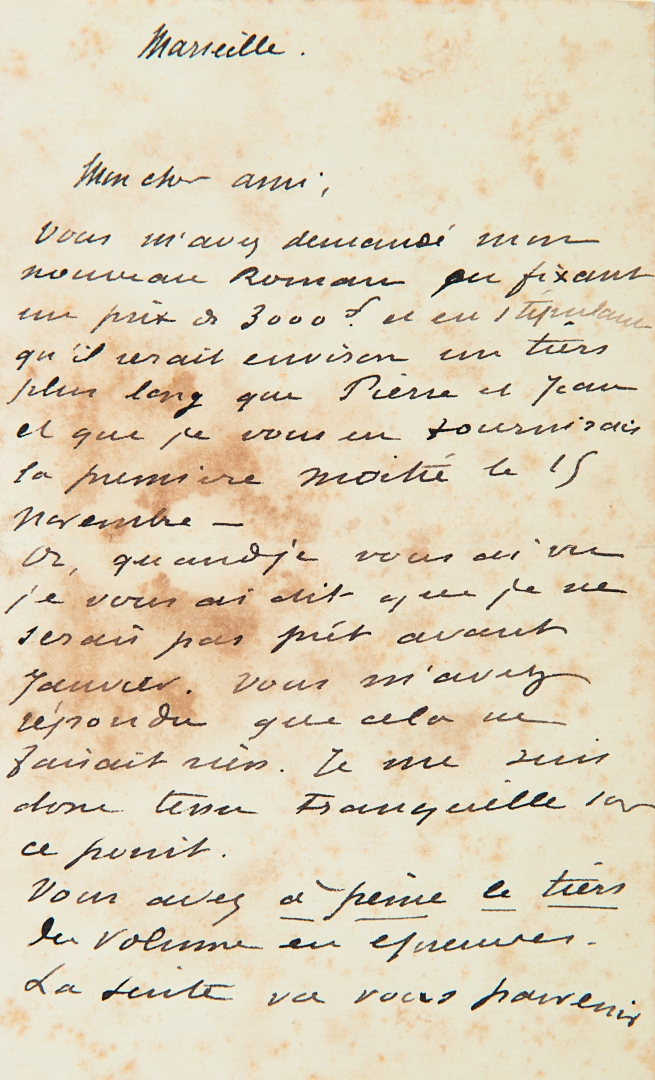 Marseille.
Mon cher ami,
Vous m'avez demandé mon
nouveau Roman en fixant
un prix de 3000 f. et en stipulant
qu'il serait environ un tiers
plus long que Pierre et Jean
et que je vous en fournirais
la première moitié le 15
novembre —
Or, quand je vous ai vu
je vous ai dit que je ne
serais pas prêt avant
Janvier. Vous m'avez
répondu que cela ne
faisait rien. Je me suis
donc tenu tranquille sur
ce point.
Vous avez à peine le tiers
du volume en épreuves.
La suite va vous parvenir